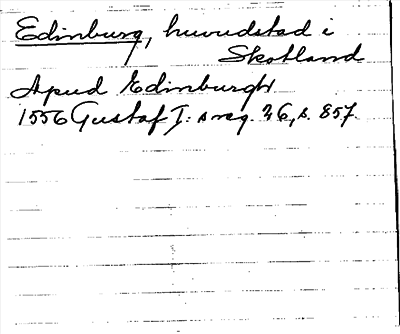 Edinburg, huvudstad i
Skotland
Apud Edinburgh
1556 Gustaf I: s reg. 26, s. 857.